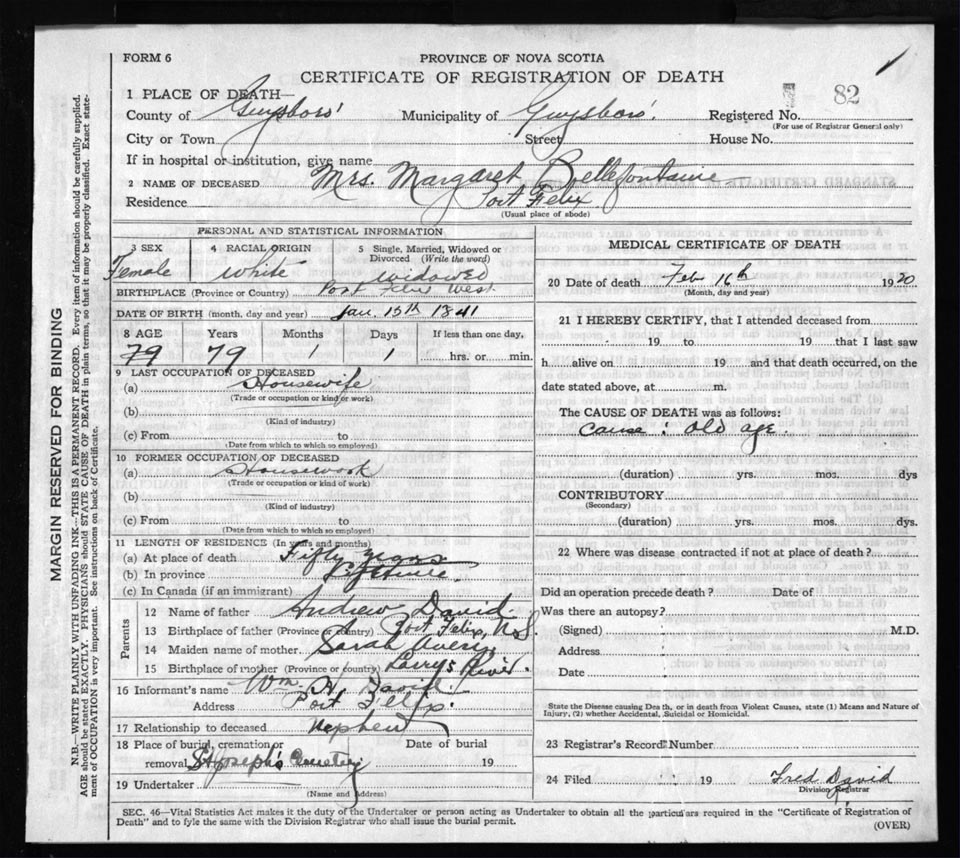 FORM 6
PROVINCE OF NOVA SCOTIA
CERTIFICATE OF REGISTRATION OF DEATH
1 PLACE OF DEATH—
82
County of Guysboro' Municipality of Guysboro' Registered No.
(For use of Registrar General only)
City or Town Street House No.
If in hospital or institution, give name
2 NAME OF DECEASED Mrs. Margaret Bellefontaine
Residence Port Felix
(Usual place of abode)
PERSONAL AND STATISTICAL INFORMATION
3 SEX 4 RACIAL ORIGIN 5 Single, Married, Widowed or Divorced (Write the word)
Female White Widowed
BIRTHPLACE (Province or Country) Port Felix West
DATE OF BIRTH (month, day and year) Jan. 15th 1841
8 AGE Years Months Days If less than one day,
79 79 1 1 hrs. or min.
9 LAST OCCUPATION OF DECEASED
(a) Housewife
(Trade or occupation or kind of work)
(b)
(Kind of industry)
(c) From to
(Date from which to which so employed)
10 FORMER OCCUPATION OF DECEASED
(a) Housework
(Trade or occupation or kind of work)
(b)
(Kind of industry)
(c) From to
(Date from which to which so employed)
11 LENGTH OF RESIDENCE (In years and months)
(a) At place of death Fifty years
(b) In province
(c) In Canada (if an immigrant)
Parents
12 Name of father Andrew David
13 Birthplace of father (Province or country) Port Felix, N.S.
14 Maiden name of mother Sarah Avery
15 Birthplace of mother (Province or country) Larrys River
16 Informant's name Wm. H. David
Address Port Felix.
17 Relationship to deceased Nephew
18 Place of burial, cremation or Date of burial
removal St Joseph's Cemetery 19
19 Undertaker
(Name and Address)
MEDICAL CERTIFICATE OF DEATH
20 Date of death Feb 16th 1920
(Month, day and year)
21 I HEREBY CERTIFY, that I attended deceased from
19 to 19 that I last saw
h alive on 19 and that death occurred, on the
date stated above, at m.
The CAUSE OF DEATH was as follows:
cause: old age.
(duration) yrs. mos. dys
CONTRIBUTORY
(Secondary)
(duration) yrs. mos. dys.
22 Where was disease contracted if not at place of death?
Did an operation precede death? Date of
Was there an autopsy?
(Signed) M.D.
Address
Date
State the Disease causing Death, or in death from Violent Causes, state (1) Means and Nature of
Injury, (2) whether Accidental, Suicidal or Homicidal.
23 Registrar's Record Number
24 Filed 19 Fred David
Division Registrar
SEC. 46—Vital Statistics Act makes it the duty of the Undertaker or person acting as Undertaker to obtain all the particulars required in the "Certificate of Registration of
Death" and to fyle the same with the Division Registrar who shall issue the burial permit.
(OVER)
MARGIN RESERVED FOR BINDING
N.B.—WRITE PLAINLY WITH UNFADING INK—THIS IS A PERMANENT RECORD. Every item of information should be carefully supplied.
AGE should be stated EXACTLY. PHYSICIANS should STATE CAUSE OF DEATH in plain terms, so that it may be properly classified. Exact state-
ment of OCCUPATION is very important. See instructions on back of Certificate.